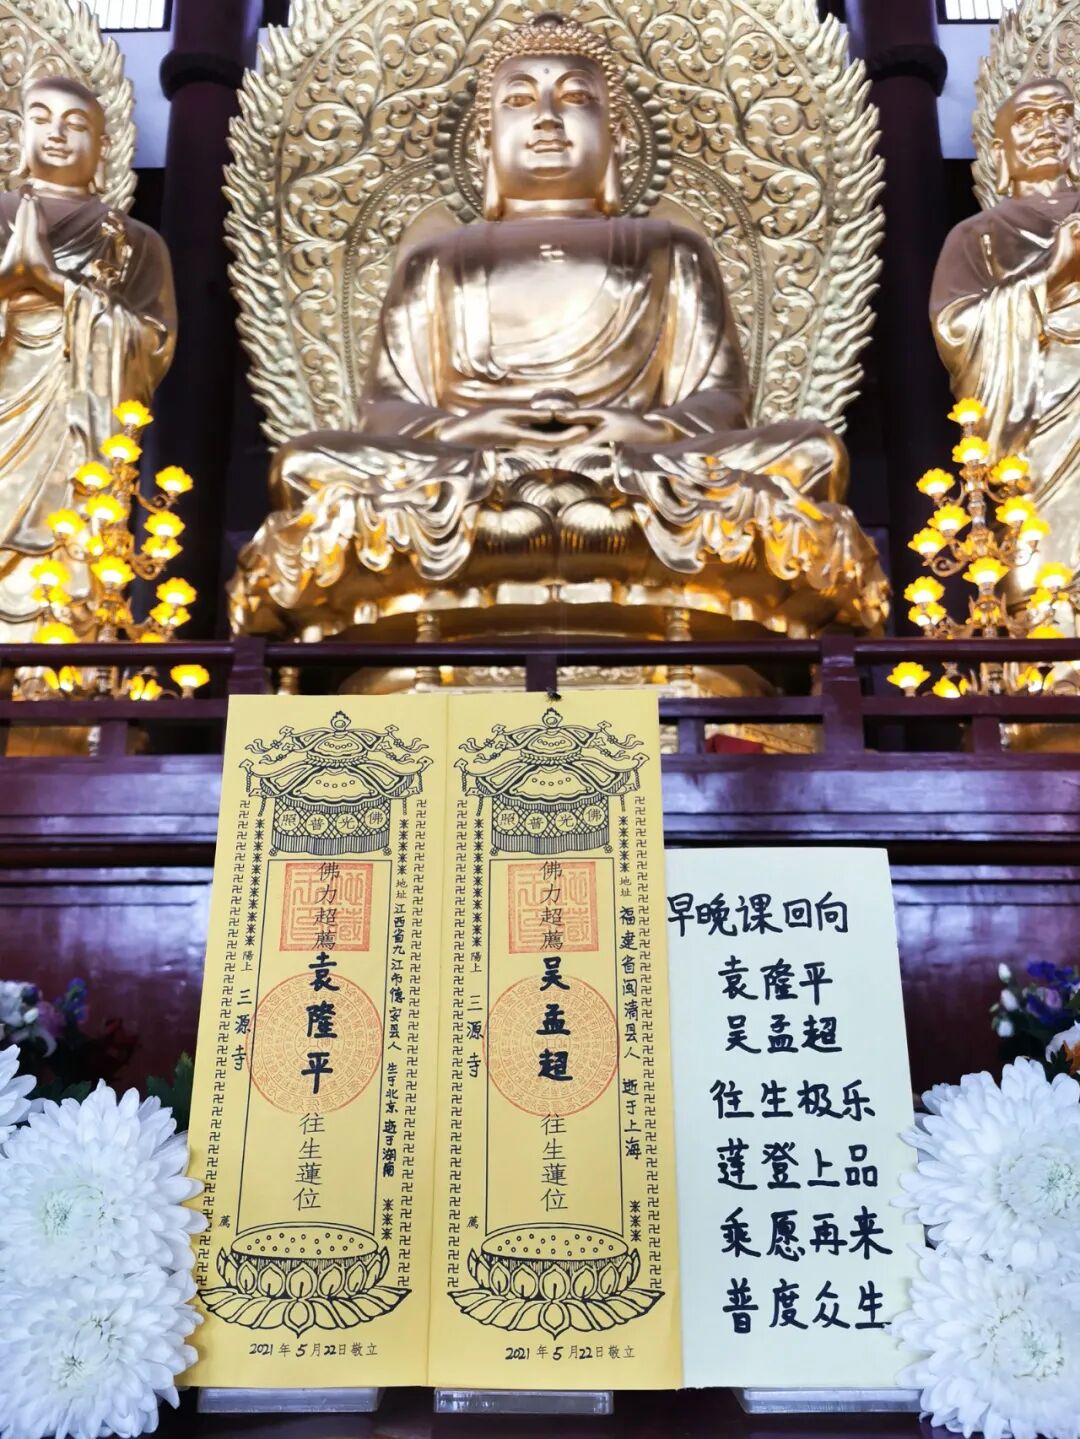 佛光普照
佛力超薦
袁隆平
往生蓮位
地址 江西省九江市德安县人 生于北京 逝于湖南
陽上 三源寺
薦
2021年5月22日敬立
佛光普照
佛力超薦
吴孟超
往生蓮位
地址 福建省闽清县人 逝于上海
陽上 三源寺
薦
2021年5月22日敬立
早晚课回向
袁隆平
吴孟超
往生极乐
莲登上品
乘愿再来
普度众生